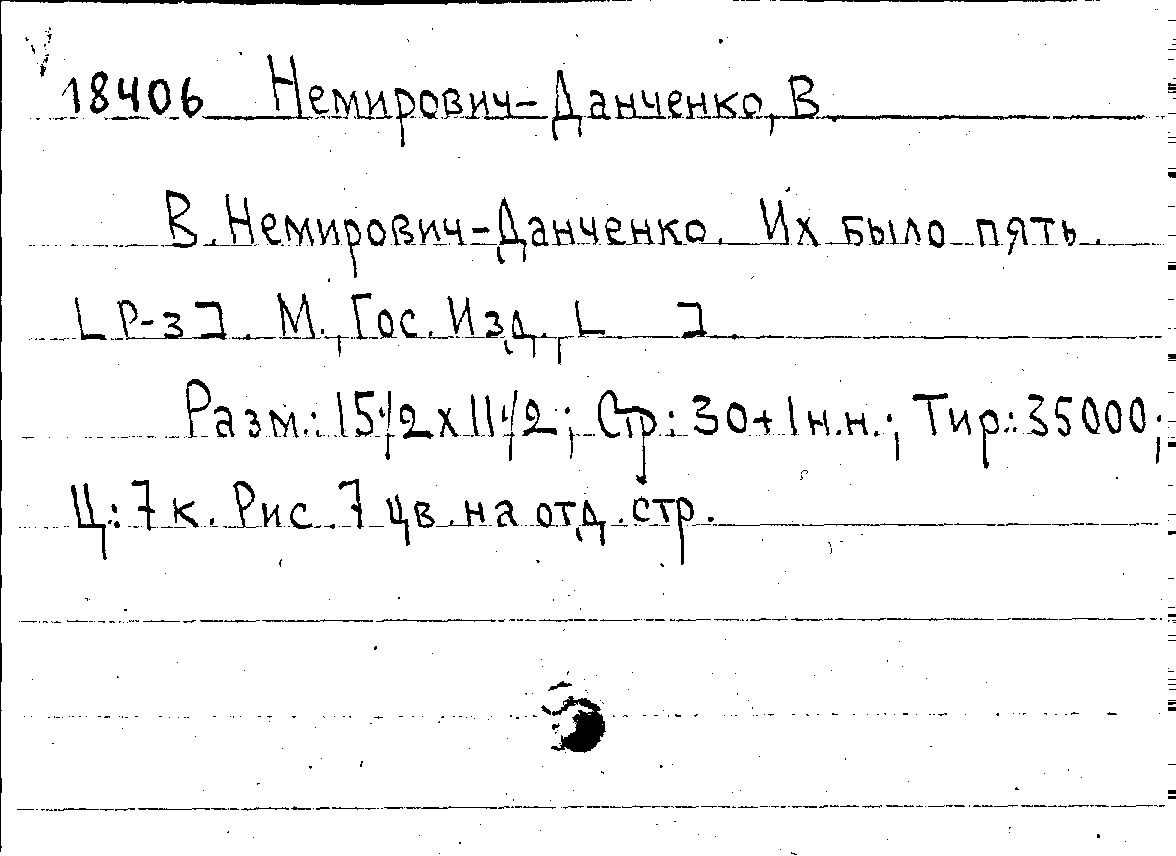 18406 Немирович-Данченко, В.
В. Немирович-Данченко. Их было пять.
[Р-з]. М., Гос. Изд., [ ].
Разм.: 15 1/2 х 11 1/2; Стр: 30+1н.н.; Тир.: 35000;
Ц.: 7 к. Рис. 7 цв. на отд. стр.